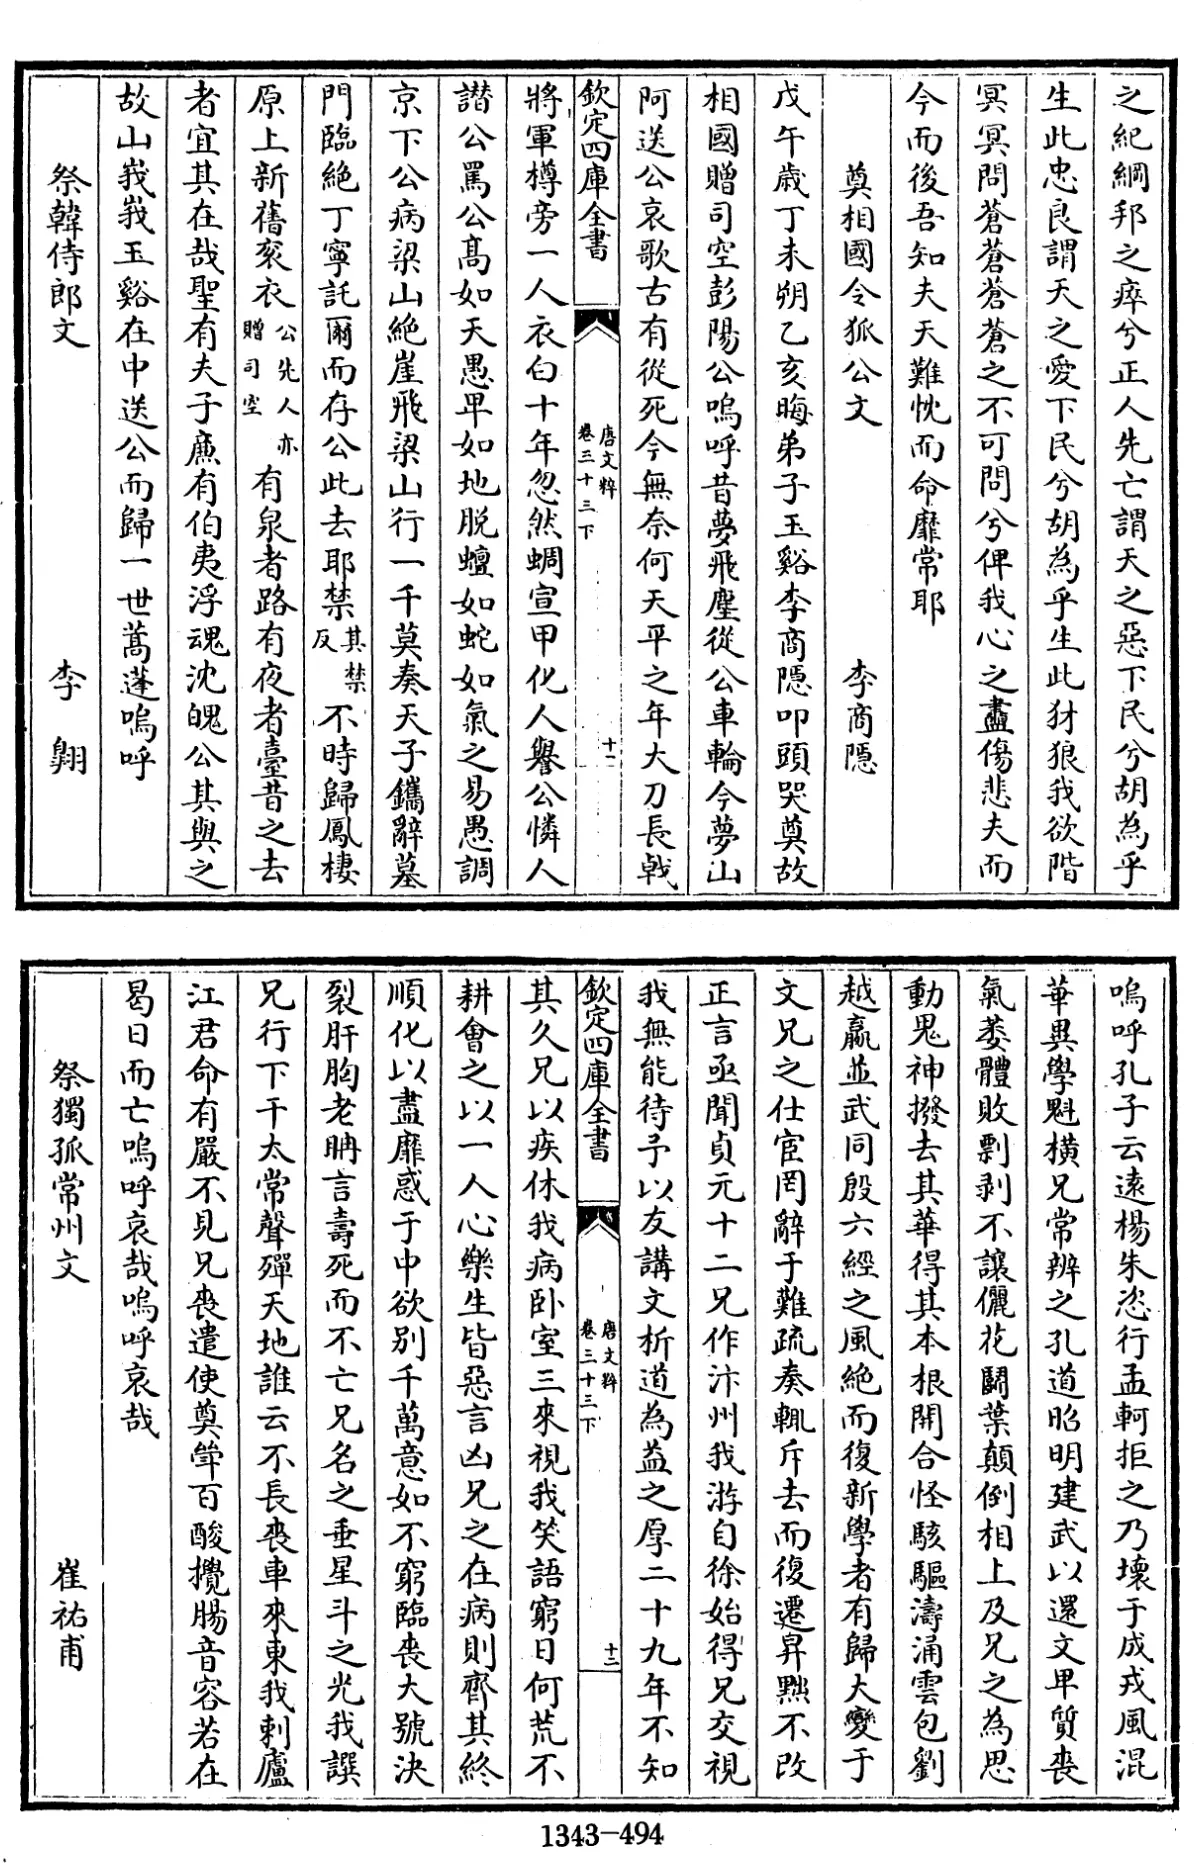 之紀綱邦之瘁兮正人先亡謂天之惡下民兮胡為乎
生此忠良謂天之愛下民兮胡為乎生此豺狼我欲階
冥冥問蒼蒼蒼蒼之不可問兮俾我心之盡傷悲夫而
今而後吾知夫天難忱而命靡常耶
奠相國令狐公文 李商隱
戊午歳丁未朔乙亥晦弟子玉谿李商隱叩頭哭奠故
相國贈司空彭陽公嗚呼昔夢飛塵從公車輪今夢山
阿送公哀歌古有從死今無奈何天平之年大刀長戟
欽定四庫全書 唐文粹 卷三十三下 十一
將軍樽旁一人衣白十年忽然蜩宣甲化人譽公憐人
譛公罵公髙如天愚卑如地脱蟺如蛇如氣之易愚調
京下公病梁山絶崖飛梁山行一千莫奏天子鐫辭墓
門臨絶丁寧託爾而存公此去耶禁其禁反不時歸鳳棲
原上新舊衮衣公先人亦贈司空有泉者路有夜者臺昔之去
者宜其在哉聖有夫子廉有伯夷浮魂沈魄公其與之
故山峩峩玉谿在中送公而歸一世蒿蓬嗚呼
祭韓侍郎文 李翱
嗚呼孔子云逺楊朱恣行孟軻拒之乃壞于成戎風混
華異學魁横兄常辨之孔道昭明建武以還文卑質喪
氣萎體敗剽剥不讓儷花鬭葉顛倒相上及兄之為思
動鬼神撥去其華得其本根開合怪駭驅濤涌雲包劉
越嬴並武同殷六經之風絶而復新學者有歸大變于
文兄之仕宦罔辭于難疏奏輒斥去而復遷昇黜不改
正言亟聞貞元十二兄作汴州我游自徐始得兄交視
我無能待予以友講文析道為益之厚二十九年不知
欽定四庫全書 唐文粹 卷三十三下 十二
其久兄以疾休我病卧室三來視我笑語窮日何荒不
耕會之以一人心樂生皆惡言凶兄之在病則齊其終
順化以盡靡惑于中欲别千萬意如不窮臨喪大號決
裂肝胸老聃言壽死而不亡兄名之垂星斗之光我譔
兄行下于太常聲殫天地誰云不長喪車來東我刺廬
江君命有嚴不見兄喪遣使奠斝百酸攪腸音容若在
曷日而亡嗚呼哀哉嗚呼哀哉
祭獨孤常州文 崔祐甫
1343-494